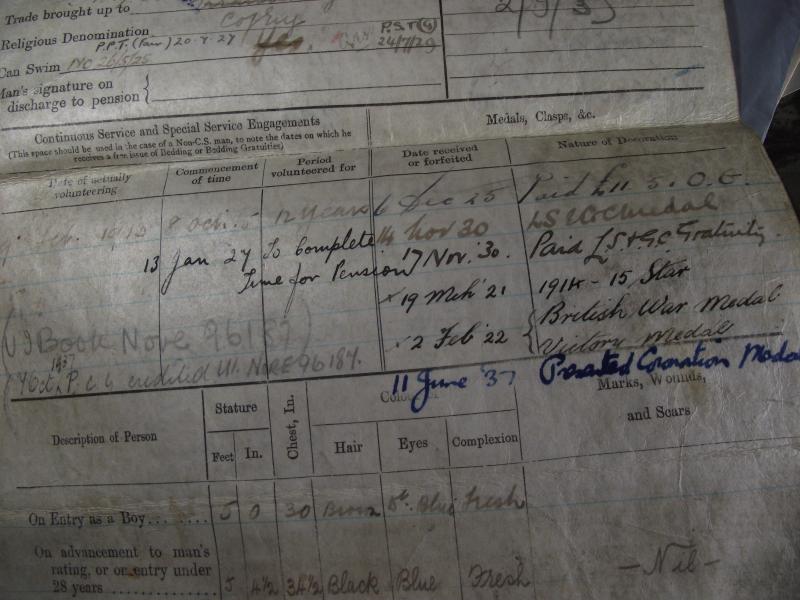 Trade brought up to
2/9/35
Religious Denomination
P.P.T. (Fair) 20.4.27
P.S.T
24/7/29
Can Swim NO 26/5/25 Yes.
Man's signature on
discharge to pension
Continuous Service and Special Service Engagements
(This space should be used in the case of a Non-C.S. man, to note the dates on which he
receives a free issue of Bedding or Bedding Gratuities)
Medals, Clasps, &c.
Date of actually
volunteering
Commencement
of time
Period
volunteered for
Date received
or forfeited
Nature of Decoration
Feb. 8 Oct. 12 years 6 Dec 25 Paid
14 Nov 30 LS & GC Medal
13 Jan 27 To complete 17 Nov. '30. Paid L.S. & G.C. Gratuity.
Time for Pension
19 Mch '21 1914-15 Star
2 Feb '22 British War Medal
Victory Medal
Book No. 96184
credited 96184.
11 June '37 Presented Coronation Medal
Description of Person
Stature
Feet In.
Chest, In.
Hair Eyes Complexion
Marks, Wounds,
and Scars
On Entry as a Boy 5 0 30 Brown Dk. Blue Fresh
On advancement to man's
rating, or on entry under
28 years 5 4½ 34½ Black Blue Fresh - Nil -